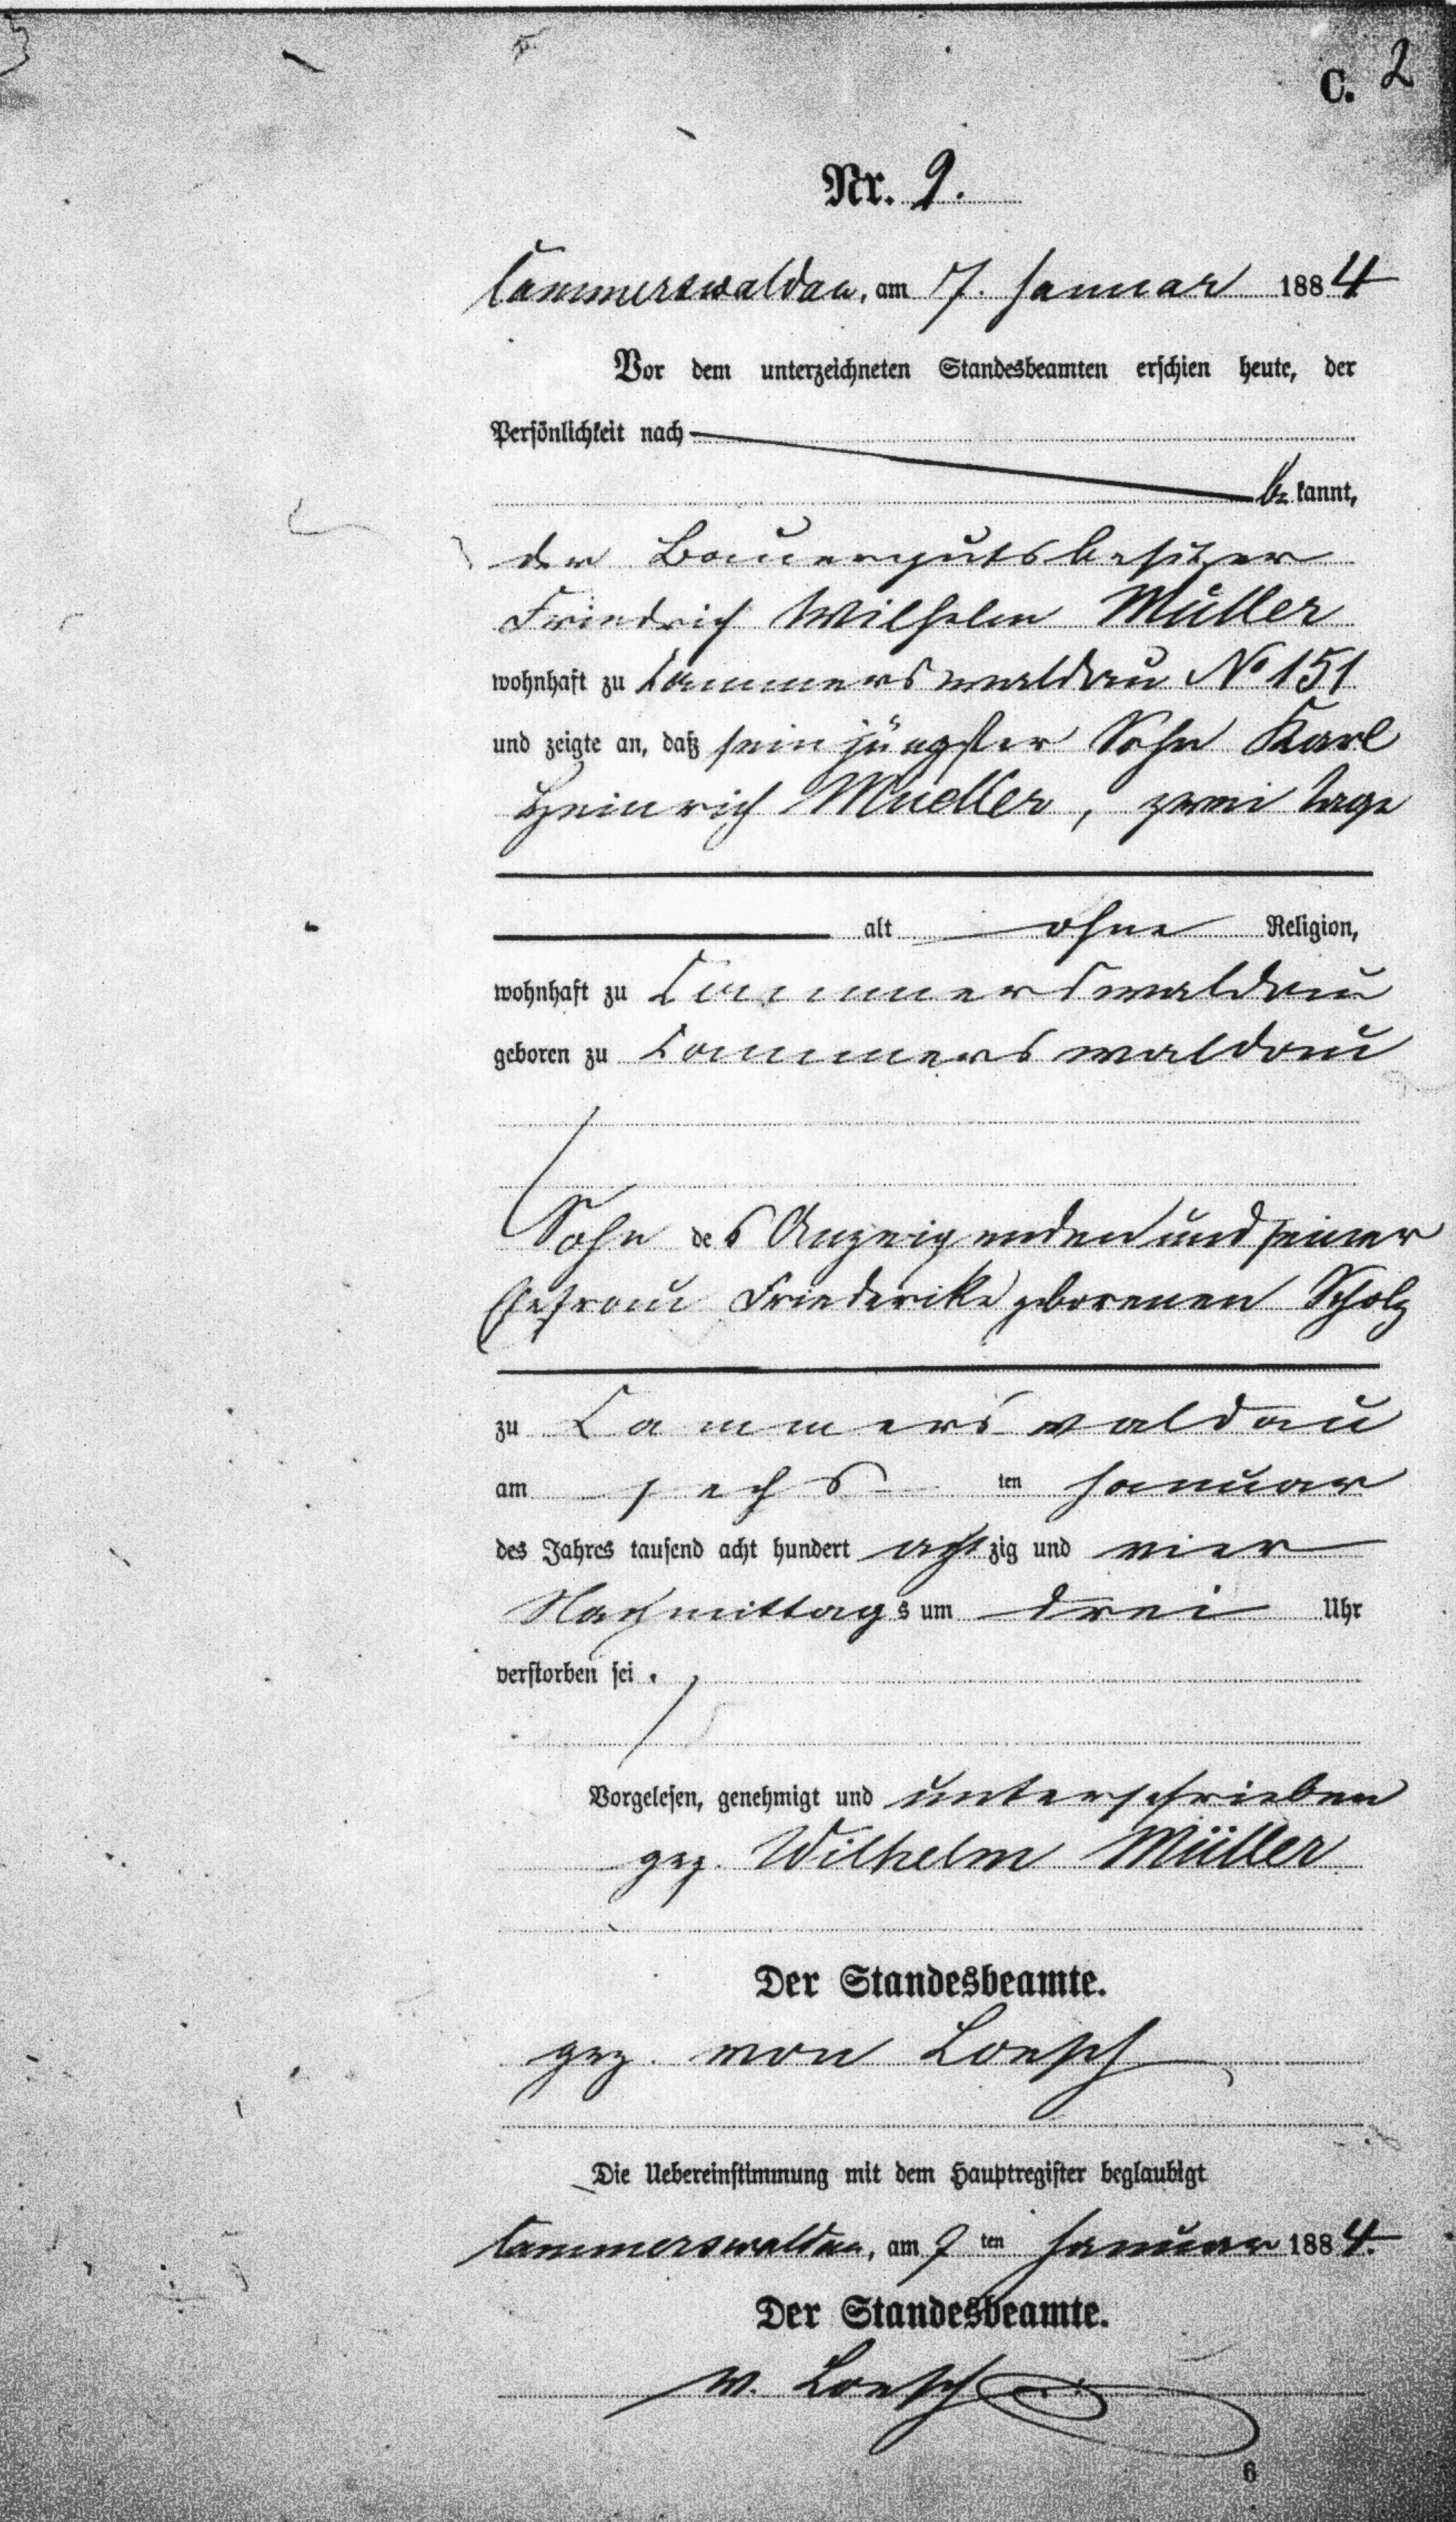 C. 2
Nr. 2.
Cammerswaldau, am 7. Januar 1884
Vor dem unterzeichneten Standesbeamten erschien heute, der
Persönlichkeit nach
be kannt,
der Bauergutsbesitzer
Friedrich Wilhelm Müller
wohnhaft zu Cammerswaldau No 151
und zeigte an, daß sein jüngster Sohn Karl
Heinrich Mueller, zwei Tage
alt ohne Religion,
wohnhaft zu Cammerswaldau
geboren zu Cammerswaldau
Sohn des Anzeigenden und seiner
Ehefrau Friederike geborenen Scholz
zu Cammerswaldau
am sechsten Januar
des Jahres tausend acht hundert achtzig und vier
Nachmittags um drei Uhr
verstorben sei.
Vorgelesen, genehmigt und unterschrieben
gez. Wilhelm Müller
Der Standesbeamte.
gez. von Loesch
Die Uebereinstimmung mit dem Hauptregister beglaubigt
Cammerswaldau, am 7ten Januar 1884.
Der Standesbeamte.
v. Loesch
6